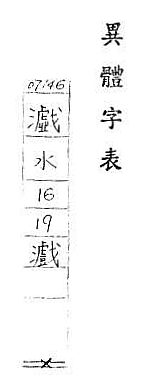 異體字表
07146
水
16
19